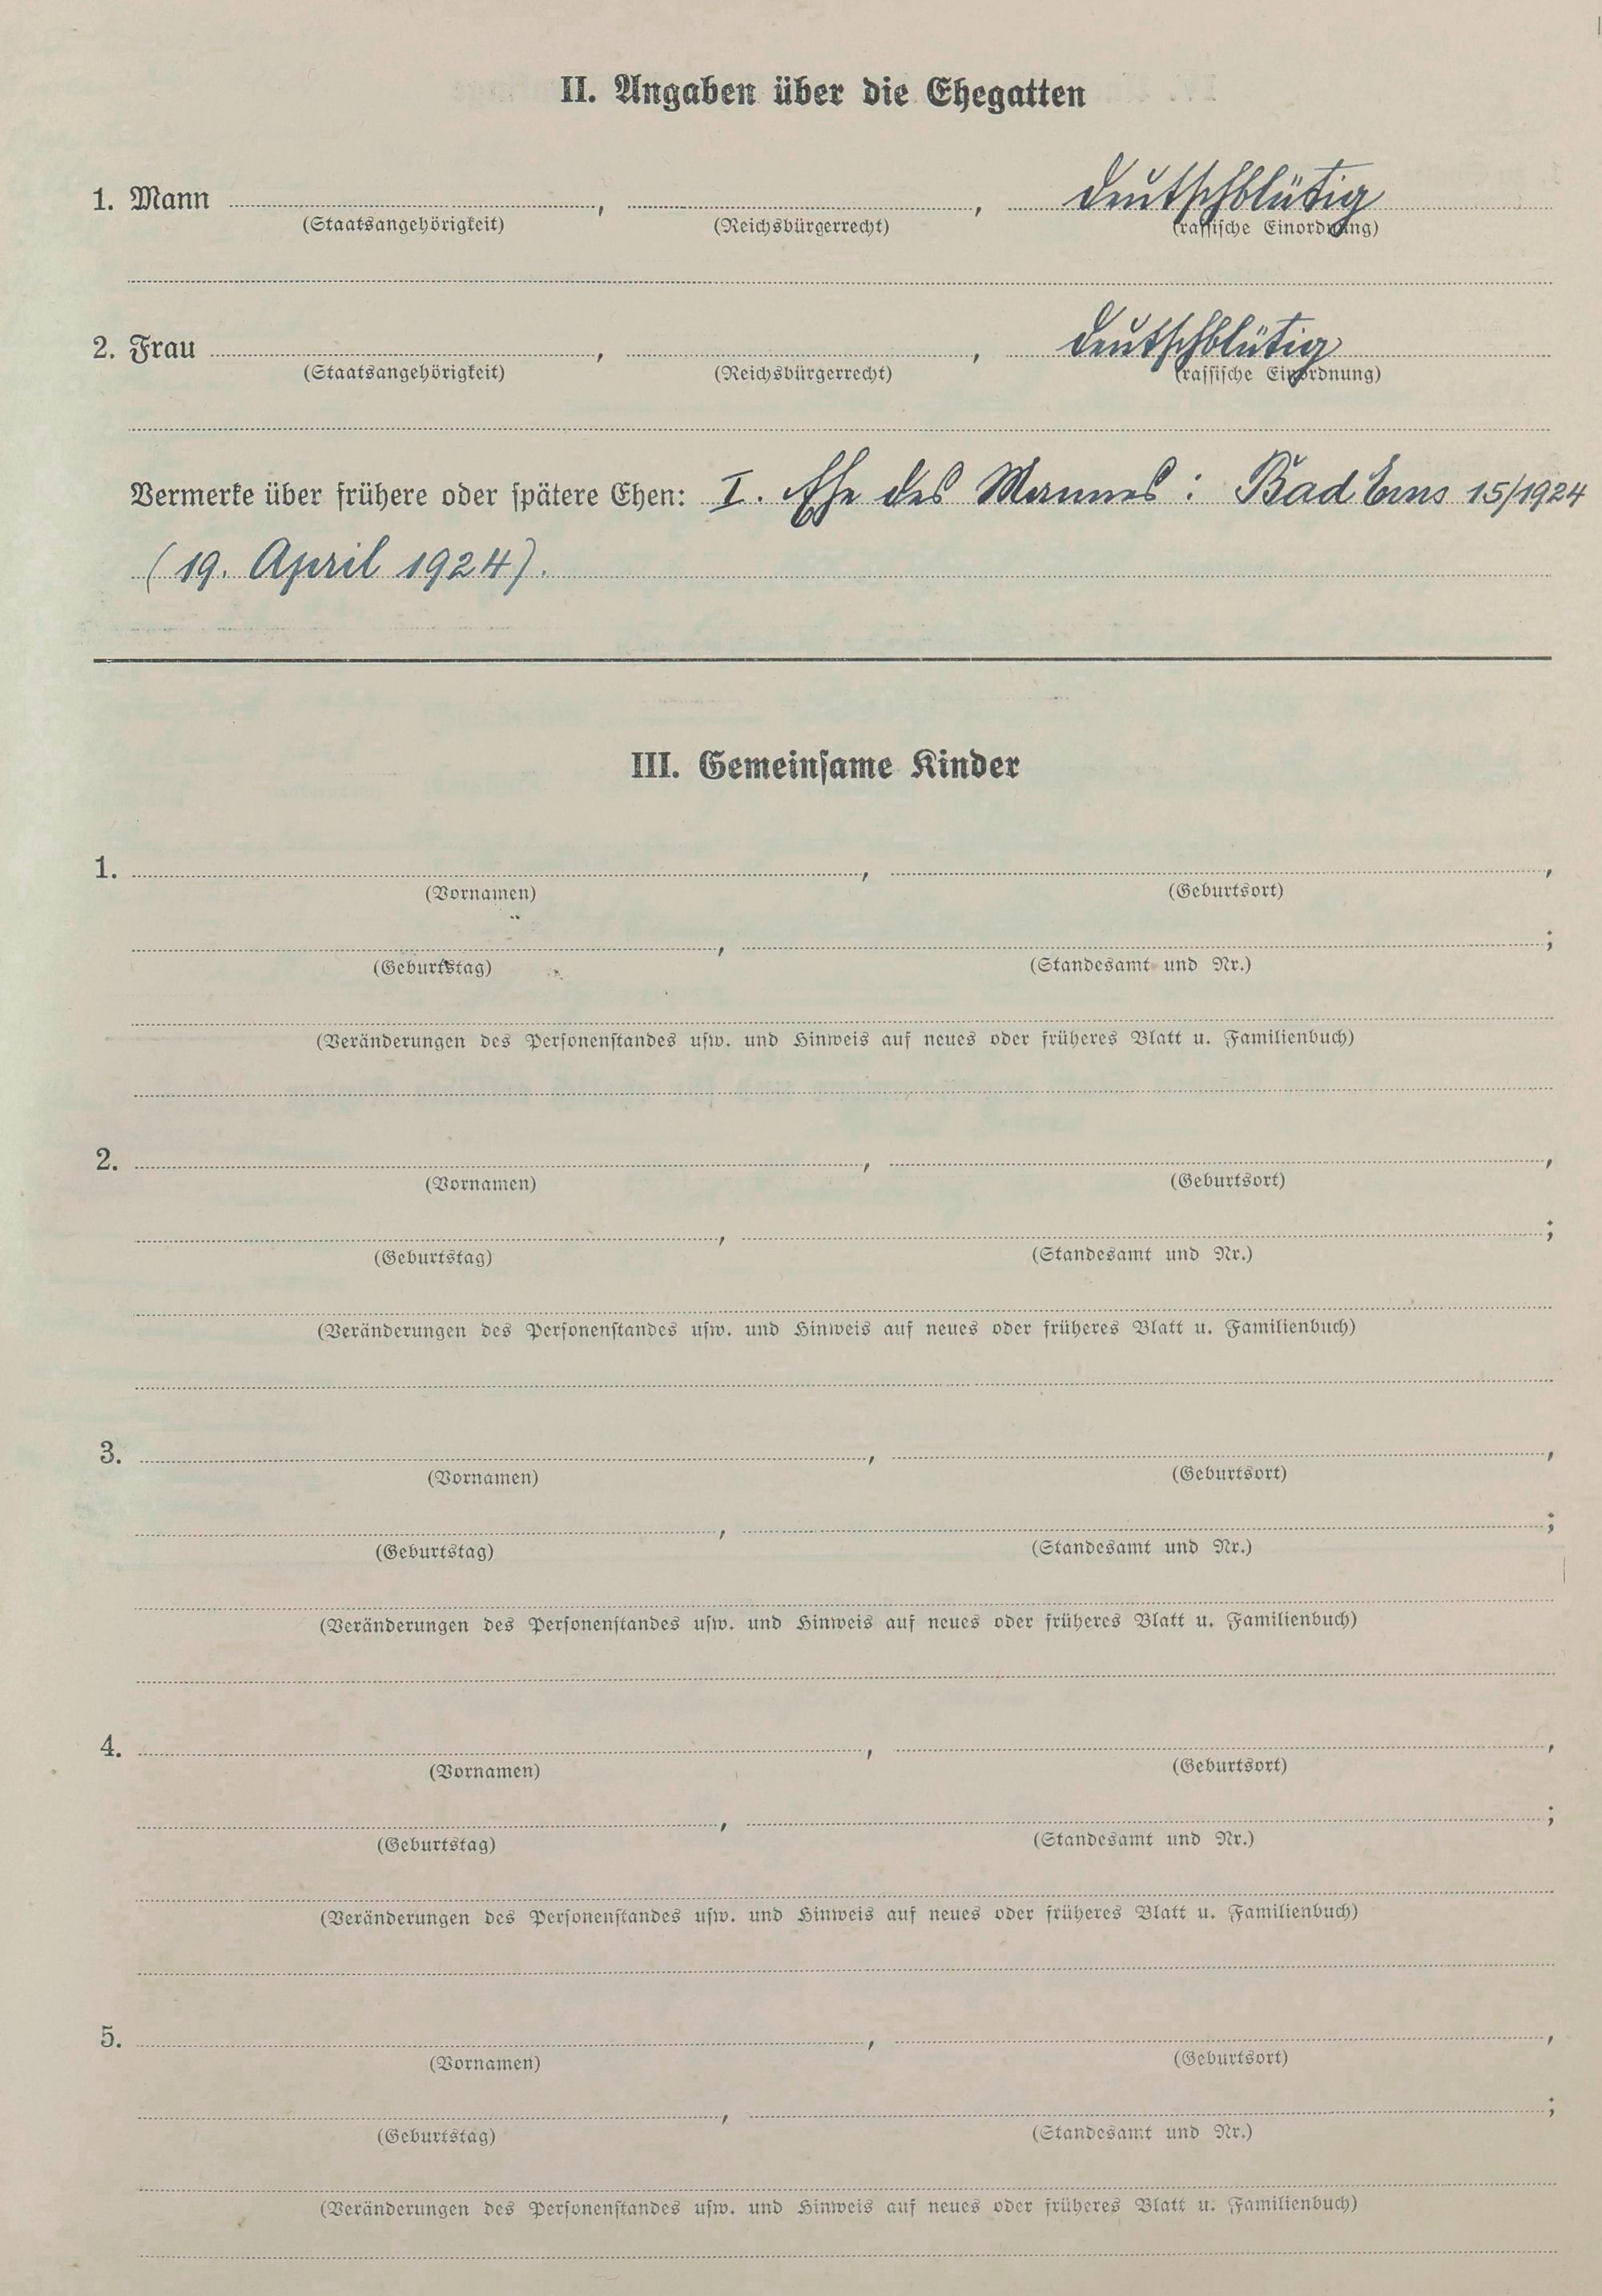 II. Angaben über die Ehegatten
1. Mann , , deutschblütig
(Staatsangehörigkeit) (Reichsbürgerrecht) (rassische Einordnung)
2. Frau , , deutschblütig
(Staatsangehörigkeit) (Reichsbürgerrecht) (rassische Einordnung)
Vermerke über frühere oder spätere Ehen: I. Ehe des Mannes: Bad Ems 15/1924
(19. April 1924).
III. Gemeinsame Kinder
1. , ,
(Vornamen) (Geburtsort)
, ;
(Geburtstag) (Standesamt und Nr.)
(Veränderungen des Personenstandes usw. und Hinweis auf neues oder früheres Blatt u. Familienbuch)
2. , ,
(Vornamen) (Geburtsort)
, ;
(Geburtstag) (Standesamt und Nr.)
(Veränderungen des Personenstandes usw. und Hinweis auf neues oder früheres Blatt u. Familienbuch)
3. , ,
(Vornamen) (Geburtsort)
, ;
(Geburtstag) (Standesamt und Nr.)
(Veränderungen des Personenstandes usw. und Hinweis auf neues oder früheres Blatt u. Familienbuch)
4. , ,
(Vornamen) (Geburtsort)
, ;
(Geburtstag) (Standesamt und Nr.)
(Veränderungen des Personenstandes usw. und Hinweis auf neues oder früheres Blatt u. Familienbuch)
5. , ,
(Vornamen) (Geburtsort)
, ;
(Geburtstag) (Standesamt und Nr.)
(Veränderungen des Personenstandes usw. und Hinweis auf neues oder früheres Blatt u. Familienbuch)